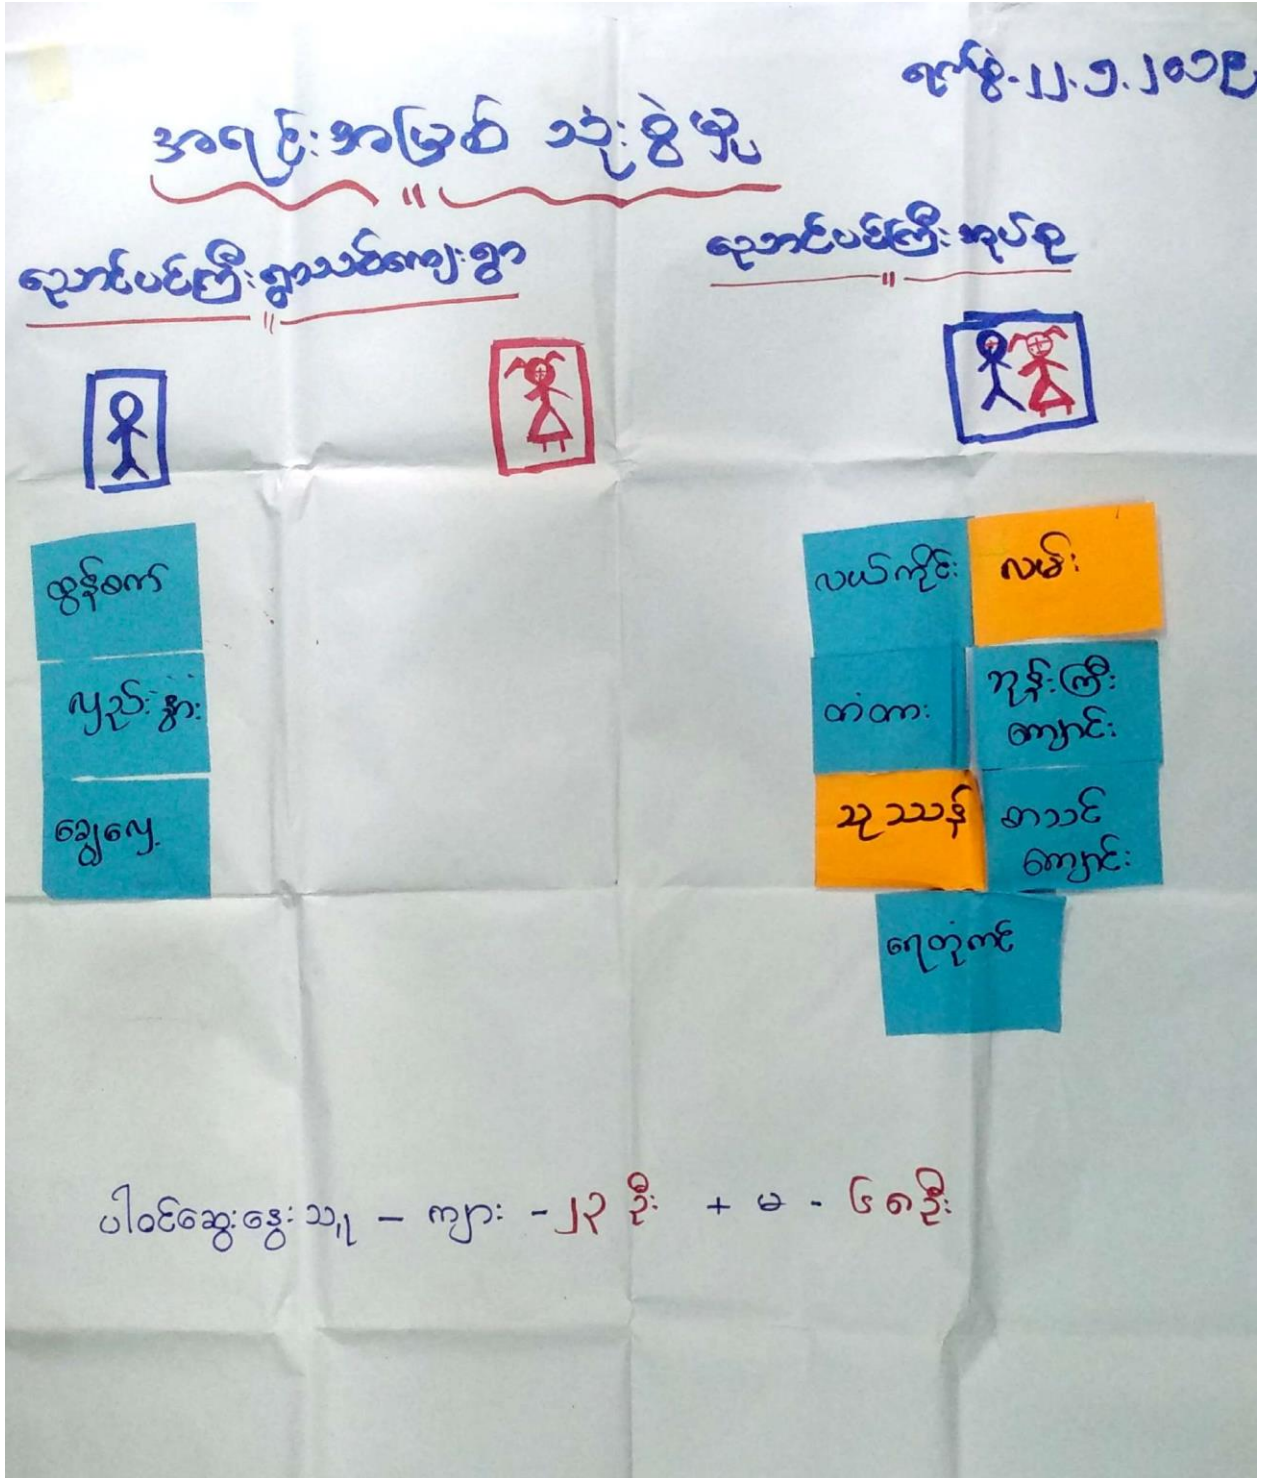 ရက်စွဲ-၂၂.၁.၂၀၁၉
အရင်းအမြစ် သုံးစွဲမှု
ညောင်ပင်ကြီးရွာသစ်ကျေးရွာ
ညောင်ပင်ကြီးအုပ်စု
ထွန်စက်
လှည်းနွား
ချွေလှေ့
လယ်ကိုင်း
လမ်း
တံတား
ဘုန်းကြီး
ကျောင်း
သုဿန်
စာသင်
ကျောင်း
ရေတုံကင်
ပါဝင်ဆွေးနွေးသူ – ကျား - ၂၃ ဦး + မ - ၆၈ဦး